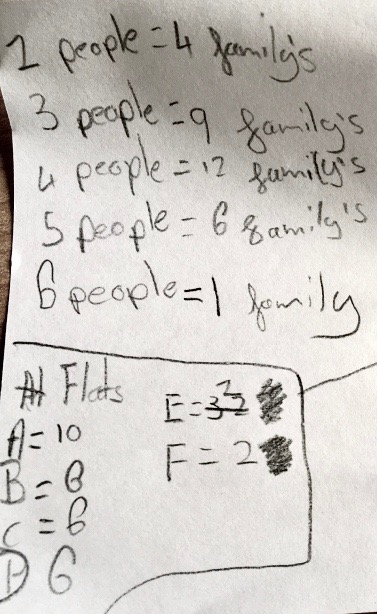 2 people = 4 family's
3 people = 9 family's
4 people = 12 family's
5 people = 6 family's
6 people = 1 family
Flats
A = 10
B =
C = 6
D 6
E = 2
F = 2